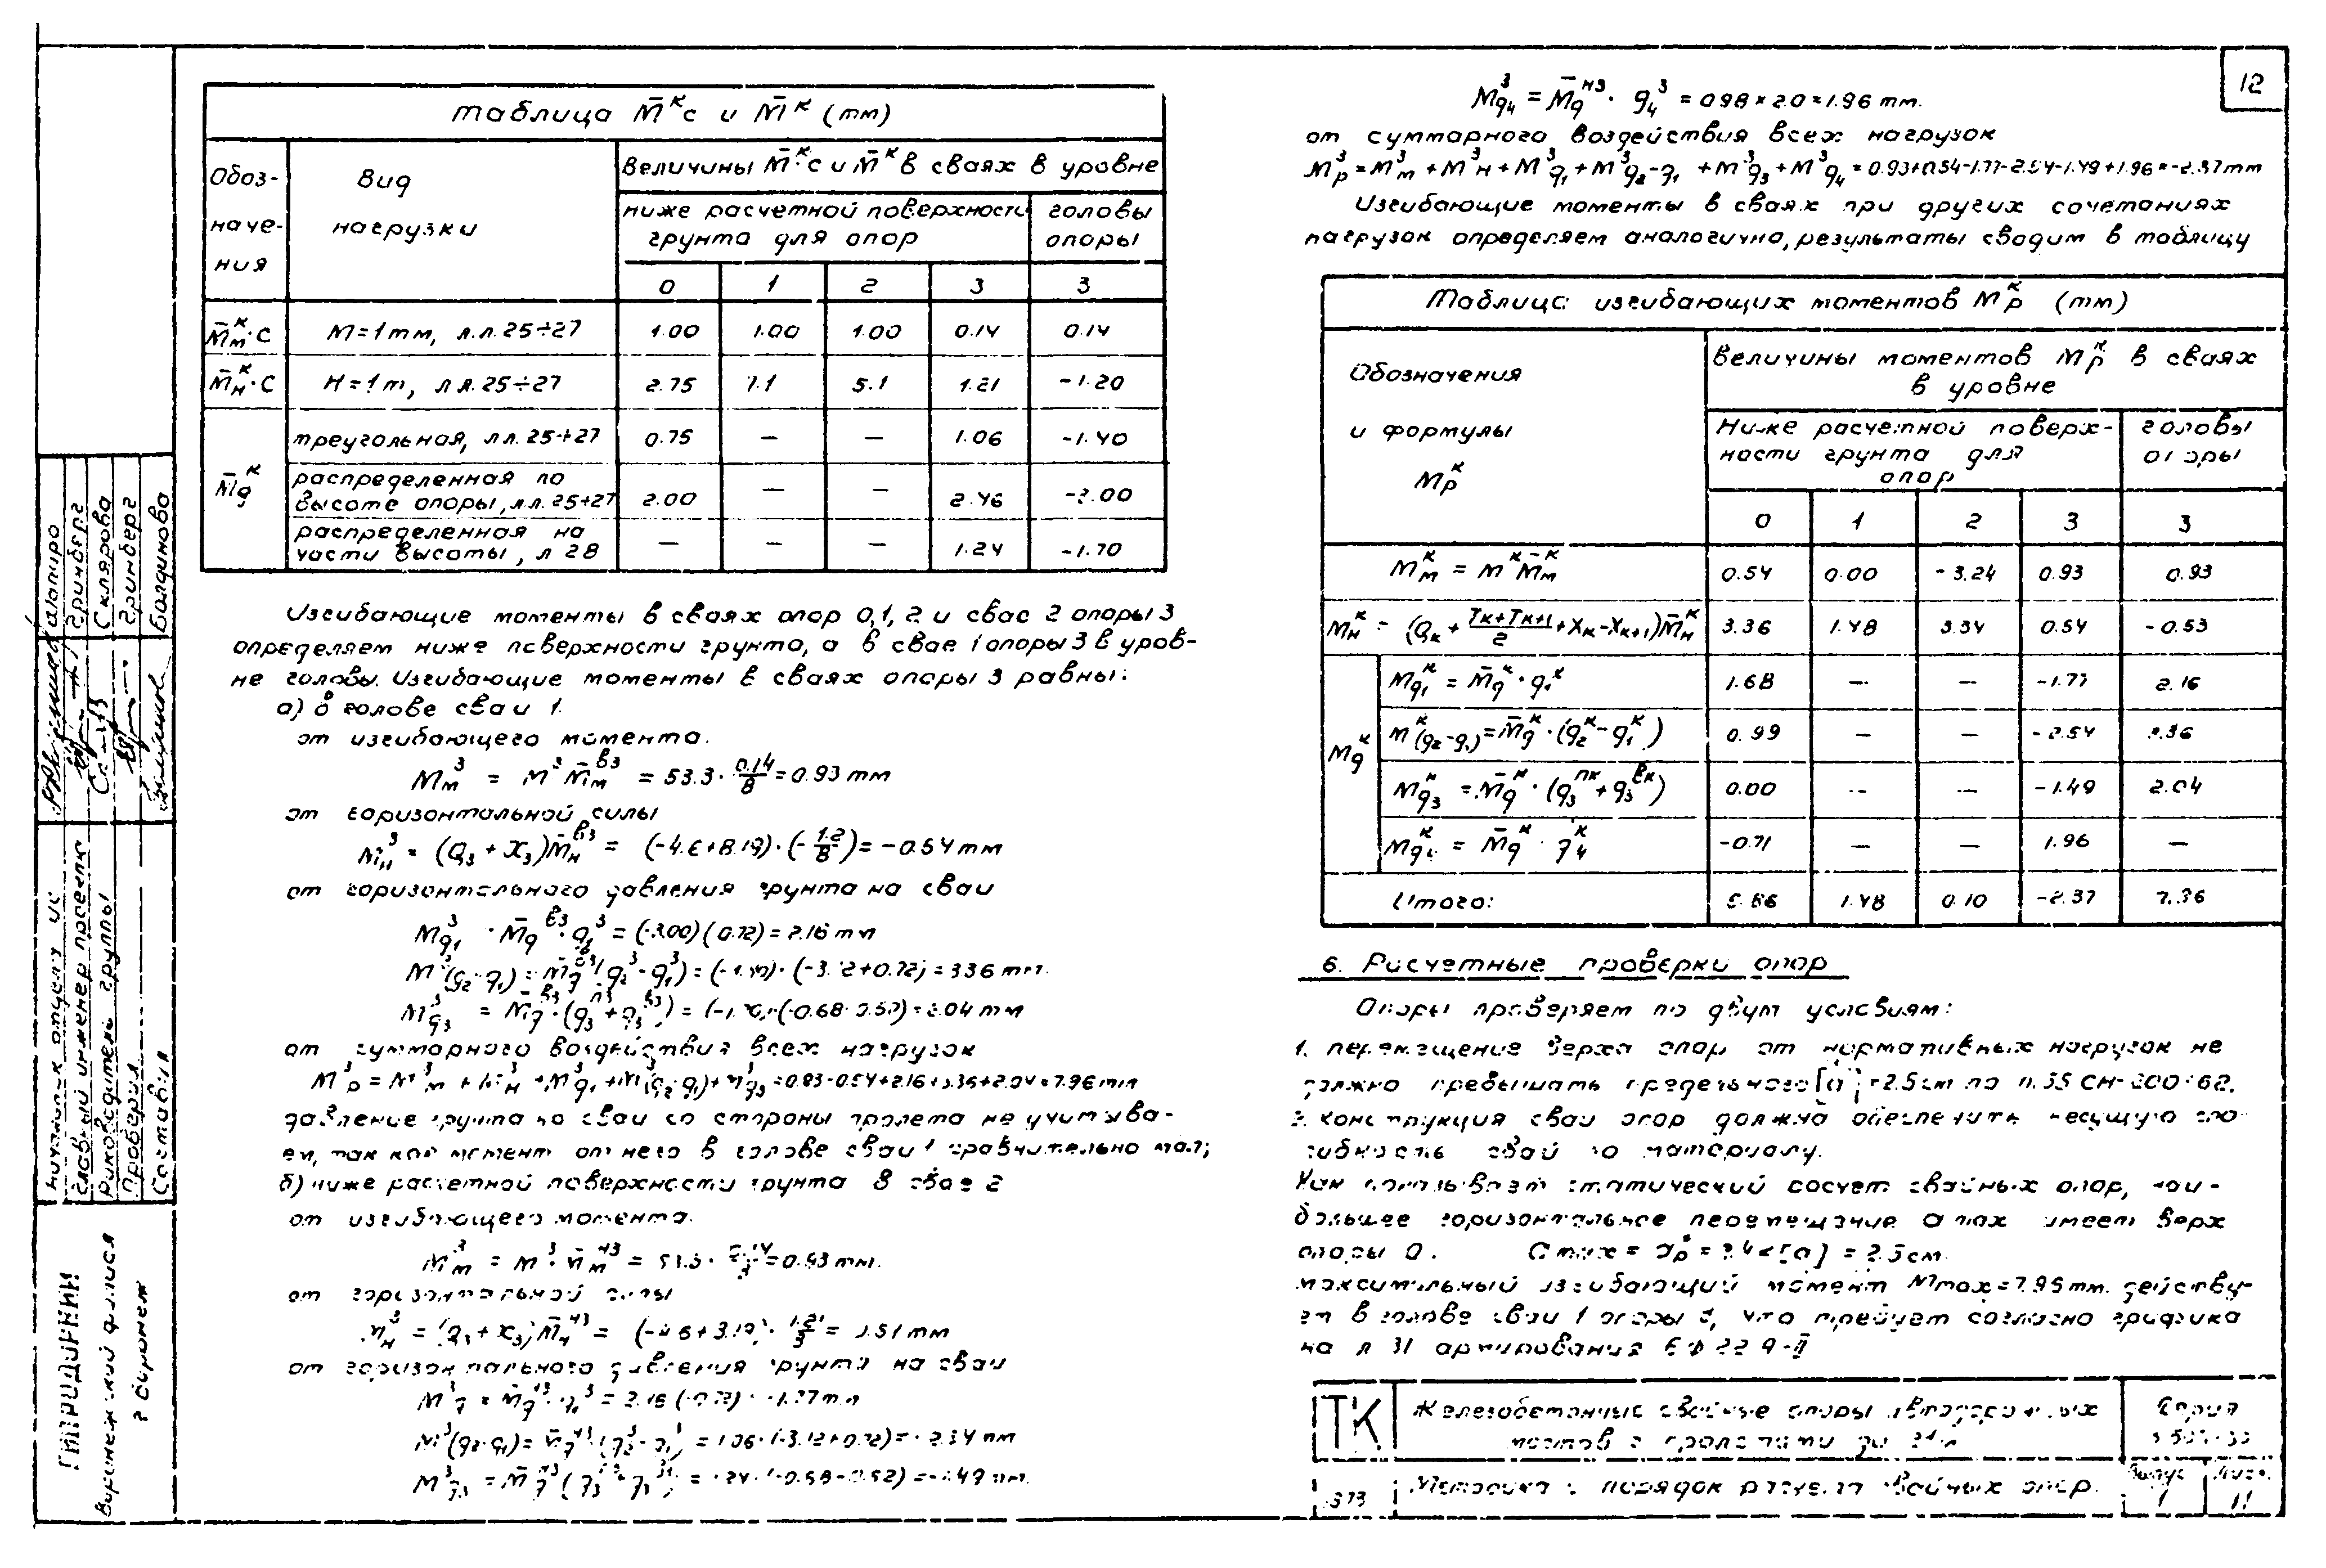 12
Таблица M̄ᴷс и M̄ᴷ (тм)
Обоз-
наче-
ния
Вид
нагрузки
Величины M̄ᴷ·с и M̄ᴷ в сваях в уровне
ниже расчетной поверхности
грунта для опор
головы
опоры
0 1 2 3 3
M̄ᴷм·с M=1тм, л.л.25÷27 1.00 1.00 1.00 0.14 0.14
M̄ᴷн·с H=1т, лл.25÷27 2.75 7.1 5.1 1.21 -1.20
M̄ᴷq
треугольная, лл.25÷27 0.75 — — 1.06 -1.40
распределенная по
высоте опоры, лл.25÷27 2.00 — — 2.46 -3.00
распределенная на
части высоты, л 28 — — — 1.24 -1.70
Изгибающие моменты в сваях опор 0,1,2 и свае 2 опоры 3
определяем ниже поверхности грунта, а в свае 1 опоры 3 в уров-
не головы. Изгибающие моменты в сваях опоры 3 равны:
а) в голове сваи 1.
от изгибающего момента.
M³м = M³·M̄ᴮ³м = 53.3 · 0.14/8 = 0.93 тм
от горизонтальной силы
M³н = (Q₃ + X₃)M̄ᴮ³н = (-4.6+8.19)·(-1.2/8) = -0.54 тм
от горизонтального давления грунта на сваи
M³q₁ · M̄ᴮ³q · q³₁ = (-3.00)(0.72) = 2.16 тм
M³(q₂-q₁) = M̄ᴮ³q (q³₂-q³₁) = (-1.40)·(-3.12+0.72) = 3.36 тм.
M³q₃ = M̄ᴮ³q · (qᴨ³₃ + qᴮ³₃) = 2.04 тм
от суммарного воздействия всех нагрузок
M³р = M³м + M³н + M³q₁ + M³(q₂-q₁) + M³q₃ = 0.93-0.54+2.16+3.36+2.04 = 7.96 тм
давление грунта на сваи со стороны пролета не учитыва-
ем, так как момент от него в голове сваи 1 сравнительно мал;
б) ниже расчетной поверхности грунта в свае 2
от изгибающего момента.
M³м = M³·M̄ᴴ³м = 53.3 · = 0.93 тм.
от горизонтальной силы
M³н = (Q₃ + X₃)M̄ᴴ³н = тм
от горизонтального давления грунта на сваи
M³q = M̄ᴴ³q · q³₁ = тм
M³(q₂-q₁) = M̄ᴴ³q (q³₂-q³₁) = 1.06·(-3.12+0.72) = тм
M³q₃ = M̄ᴴ³q = тм.
M³q₄ = M̄ᴴ³q · q³₄ = 0.98 × 2.0 = 1.96 тм.
от суммарного воздействия всех нагрузок
M³р = M³м + M³н + M³q₁ + M³q₂-q₁ + M³q₃ + M³q₄ = 0.93+0.54-1.77-2.54-1.49+1.96 = -2.37 тм
Изгибающие моменты в сваях при других сочетаниях
нагрузок определяем аналогично, результаты сводим в таблицу
Таблица изгибающих моментов Mᴷр (тм)
Обозначения
и формулы
Mᴷр
Величины моментов Mᴷр в сваях
в уровне
Ниже расчетной поверх-
ности грунта для
опор
головы
опоры
0 1 2 3 3
Mᴷм = MᴷM̄ᴷм 0.54 0.00 -3.24 0.93 0.93
Mᴷн = (Qк + Tк+Tк+1/2 + Xк-Xк+1)M̄ᴷн 3.36 1.48 3.34 0.54 -0.53
Mᴷq
Mᴷq₁ = M̄ᴷq · q₁ᴷ 1.68 — — -1.77 2.16
Mᴷ(q₂-q₁) = M̄ᴷq · (q₂ᴷ-q₁ᴷ) 0.99 — — -2.54 3.36
Mᴷq₃ = M̄ᴷq · (q₃ᴨᴷ + q₃ᴮᴷ) 0.00 — — -1.49 2.04
Mᴷq₄ = M̄ᴷq · q₄ᴷ -0.71 — — 1.96 —
Итого: 5.86 1.48 0.10 -2.37 7.96
6. Расчетные проверки опор
Опоры проверяем по двум условиям:
1. перемещение верха опор от нормативных нагрузок не
должно превышать предельного [a] = 2.5 см по п.55 СН-200-62.
2. конструкция сваи опор должна обеспечить несущую спо-
собность свай по материалу.
Как показывает статический расчет свайных опор, наи-
большее горизонтальное перемещение a max имеет верх
опоры 0. a max = aр = 2.4 < [a] = 2.5 см.
максимальный изгибающий момент M max = 7.96 тм. действу-
ет в голове сваи 1 опоры 3, что требует согласно графика
на л 31 армирования 6 Ф 22 А-II
ТК
Железобетонные свайные опоры автодорожных
мостов с пролетами до
Серия
Методика и порядок расчета свайных опор.
Выпуск
1
Лист
11
Начальник отдела ИС
Главный инженер проекта
Руководитель группы
Проверил
Составил
Шапиро
Гринберг
Склярова
Гринберг
Болдинова
ГИПРОДОРНИИ
Воронежский филиал
г Воронеж